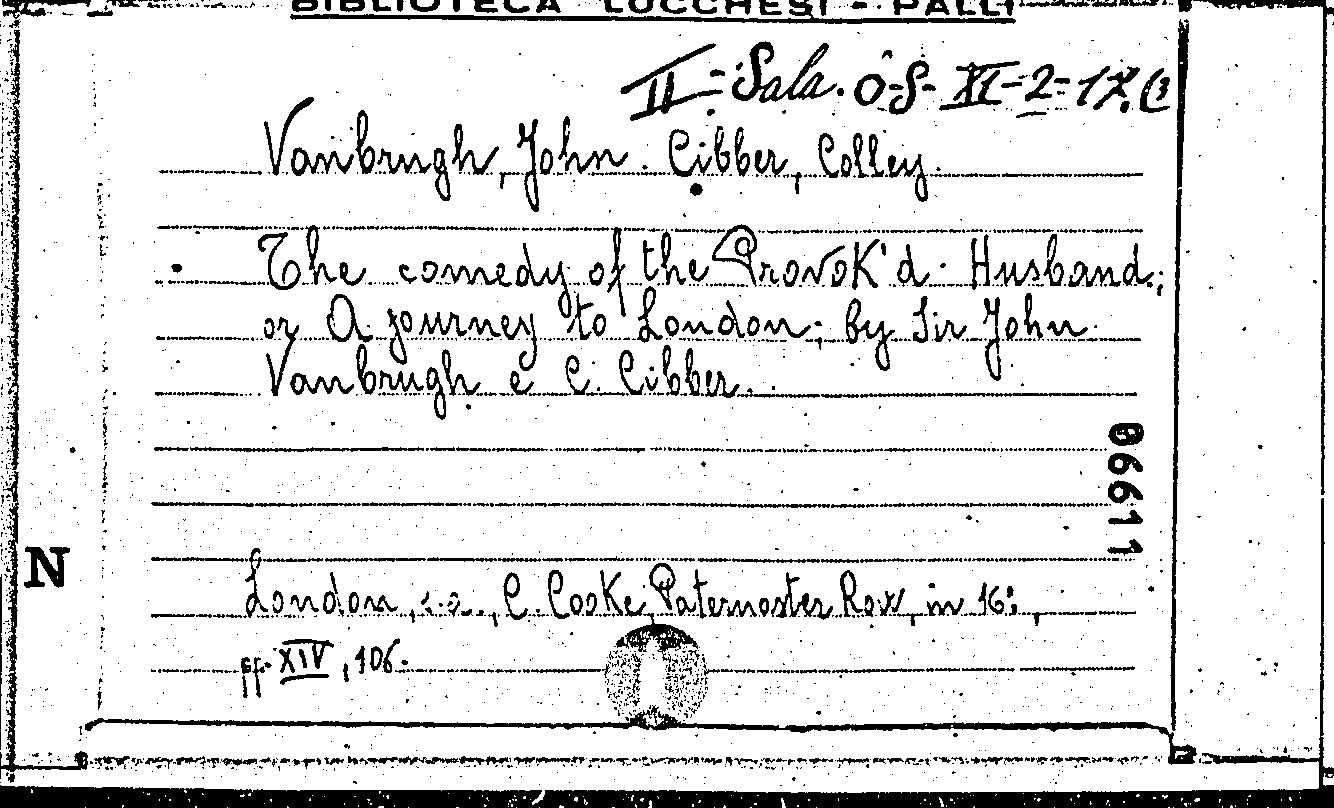 BIBLIOTECA LUCCHESI - PALLI
II = Sala. O-S- XI-2-17.(1
Vanbrugh, John. Cibber, Colley.
The comedy of the Provok'd. Husband;
or A journey to London; by Sir John
Vanbrugh e C. Cibber.
06611
N
London, s.a., C. Cooke, Paternoster Row, in 16°,
pp. XIV, 106.